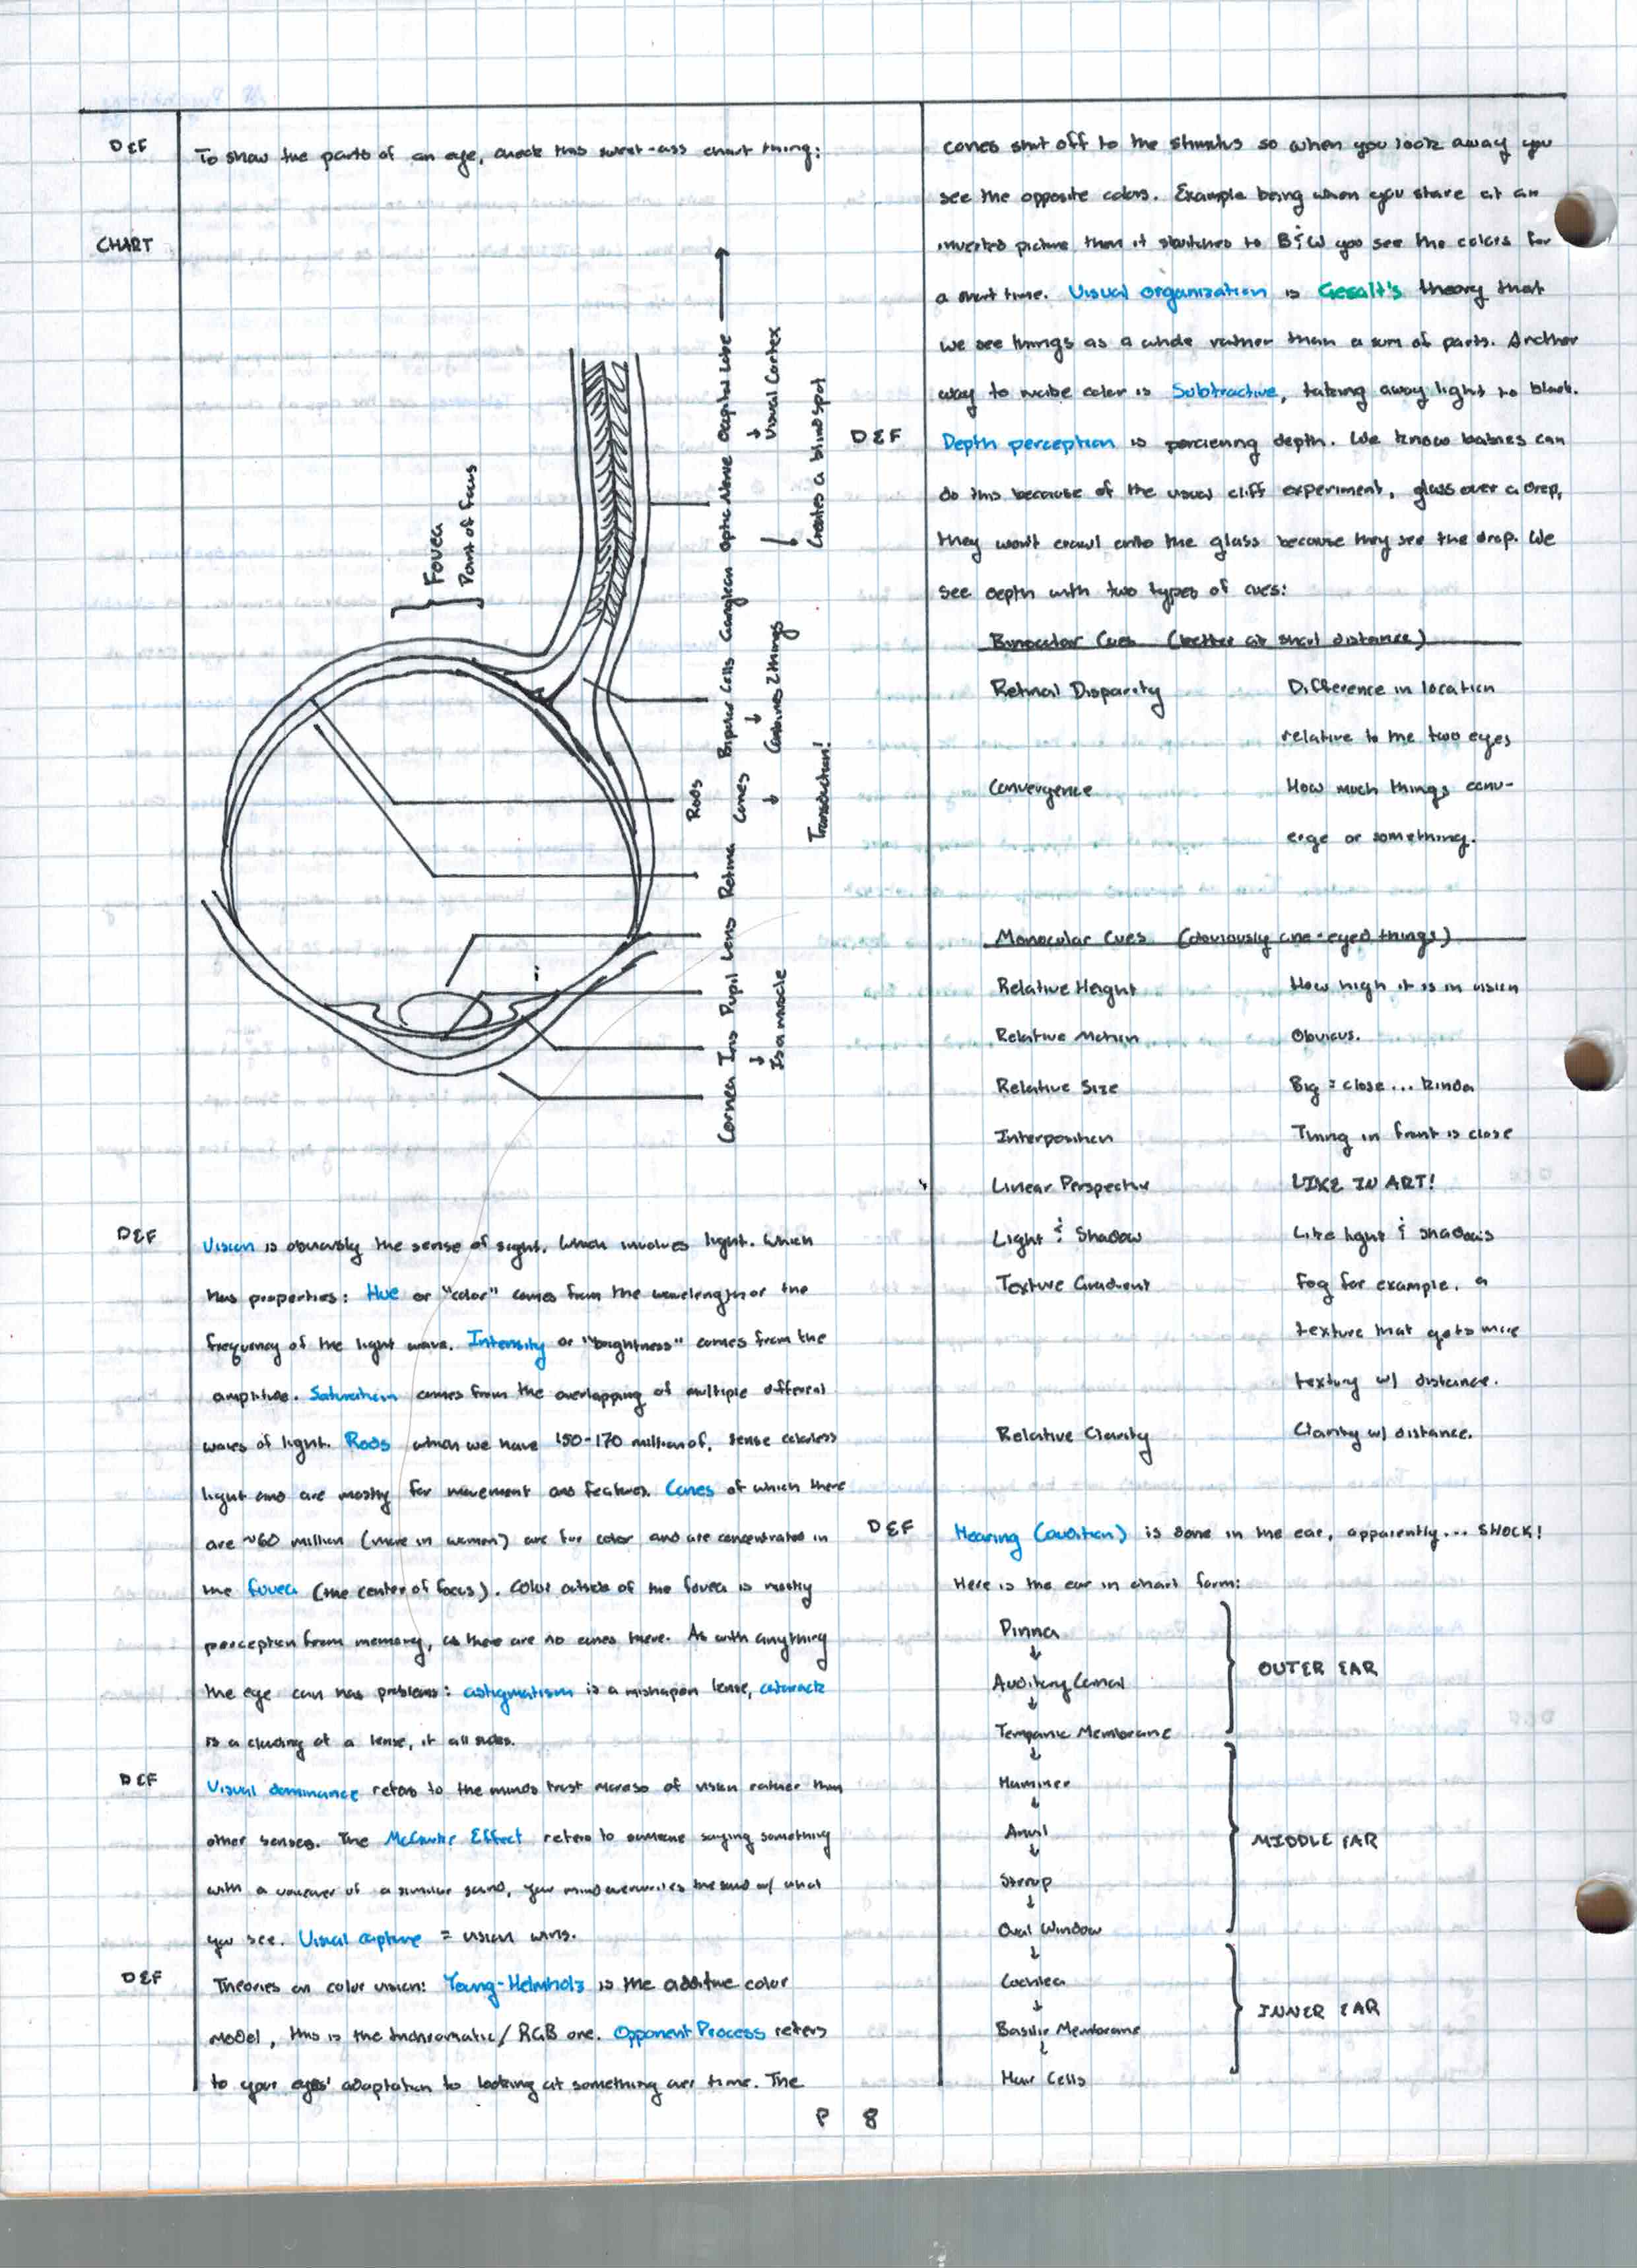 DEF
To show the parts of an eye, check this sweet-ass chart thing:
CHART
Fovea
Point of focus
Cornea Iris Pupil Lens Retina Rods Cones Bipolar Cells Ganglean Optic Nerve Occipital Lobe
Is a muscle
Transduction!
Combines 2 things
Creates a blind spot
Visual Cortex
DEF
Vision is obviously the sense of sight. Which involves light. Which
has properties: Hue or "color" comes from the wavelength or the
frequency of the light wave. Intensity or "brightness" comes from the
amplitude. Saturation comes from the overlapping of multiple different
waves of light. Rods which we have 150-170 million of, sense colorless
light and are mostly for movement and features. Cones of which there
are ~60 million (more in women) are for color and are concentrated in
the fovea (the center of focus). Color outside of the fovea is mostly
perception from memory, as there are no cones there. As with anything
the eye can has problems: astigmatism is a mishapen lense, catarack
is a clouding of a lense, it all sucks.
DEF
Visual dominance refers to the minds trust moreso of vision rather than
other senses. The McGurke Effect refers to someone saying something
with a voiceover of a similar sound, your mind overwrites the sound w/ what
you see. Visual capture = vision wins.
DEF
Theories on color vision: Young-Helmholz is the additive color
model, this is the trichromatic/RGB one. Opponent Process refers
to your eyes' adaptation to looking at something over time. The
cones shut off to the stimulus so when you look away you
see the opposite colors. Example being when you stare at an
inverted picture then it switches to B&W you see the colors for
a short time. Visual organization is Gesalt's theory that
we see things as a whole rather than a sum of parts. Another
way to make color is Subtractive, taking away light to black.
DEF
Depth perception is percieving depth. We know babies can
do this because of the visual cliff experiment, glass over a drop,
they won't crawl onto the glass because they see the drop. We
see depth with two types of cues:
Binocular Cues (better at short distance)
Retinal Disparity Difference in location
relative to the two eyes
Convergence How much things conv-
erge or something.
Monocular Cues (obviously one-eyed things)
Relative Height How high it is in vision
Relative Motion Obvious.
Relative Size Big = close... kinda
Interposition Thing in front is close
Linear Perspective LIKE IN ART!
Light & Shadow Like light & shadows
Texture Gradient Fog for example. a
texture that gets more
textury w/ distance.
Relative Clarity Clarity w/ distance.
DEF
Hearing (audition) is done in the ear, apparently... SHOCK!
Here is the ear in chart form:
Pinna
Auditory Canal
OUTER EAR
Tempanic Membrane
Hammer
Anvil
MIDDLE EAR
Stirrup
Oval Window
Cochlea
INNER EAR
Basilir Membrane
Hair Cells
P 8